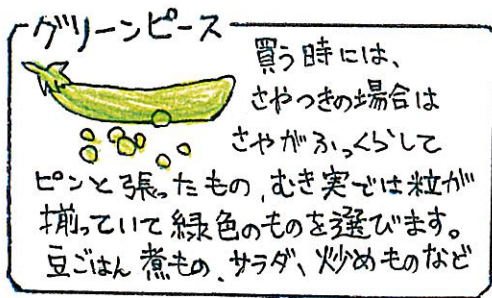 グリーンピース
買う時には、
さやつきの場合は
さやがふっくらして
ピンと張ったもの、むき実では粒が
揃っていて緑色のものを選びます。
豆ごはん 煮もの、サラダ、炒めものなど